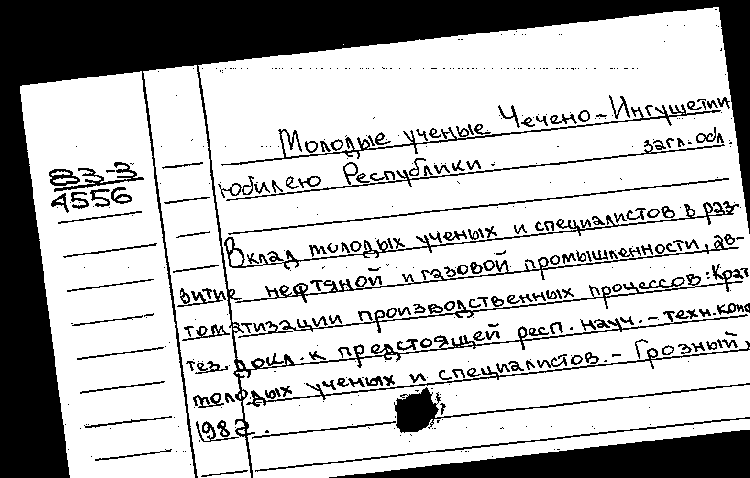 Молодые ученые Чечено-Ингушетии
юбилею Республики.
загл. обл.
В3-3
4556
Вклад молодых ученых и специалистов в раз-
витие нефтяной и газовой промышленности, ав-
томатизации производственных процессов: Крат
тез. докл. к предстоящей респ. науч.-техн. конф
молодых ученых и специалистов. - Грозный,
1982.